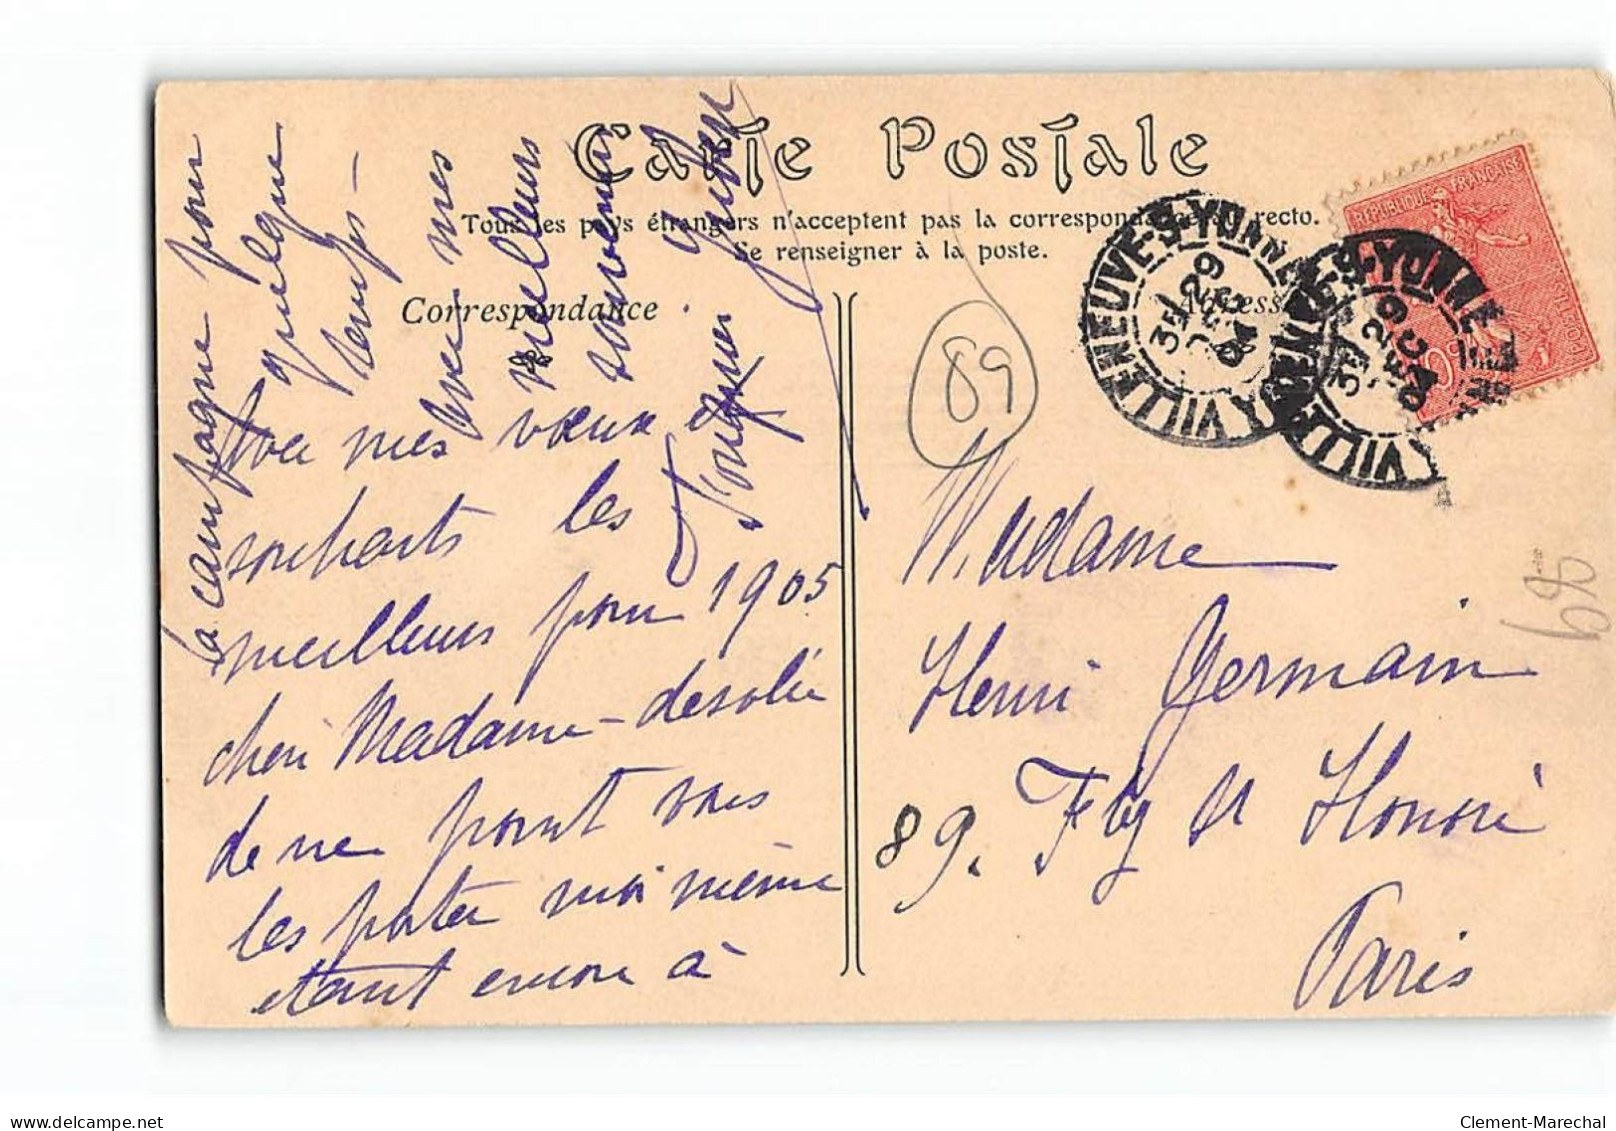 Carte Postale
Tous les pays étrangers n'acceptent pas la correspondance au recto.
Se renseigner à la poste.
Correspondance
Adresse
VILLENEUVE-S-YONNE YONNE
3E 29 DEC 04
VILLENEUVE-S-YONNE
3E 29 DEC 04
REPUBLIQUE FRANÇAISE
POSTES
10c
89
Avec mes vœux &
souhaits les
meilleurs pour 1905
chère Madame - désolée
de ne point vous
les porter moi même
étant encore à
la campagne pour
quelque
temps -
avec mes
meilleurs
souvenirs
Madame
Henri Germain
89. Fbg St Honoré
Paris
89
Clement-Marechal